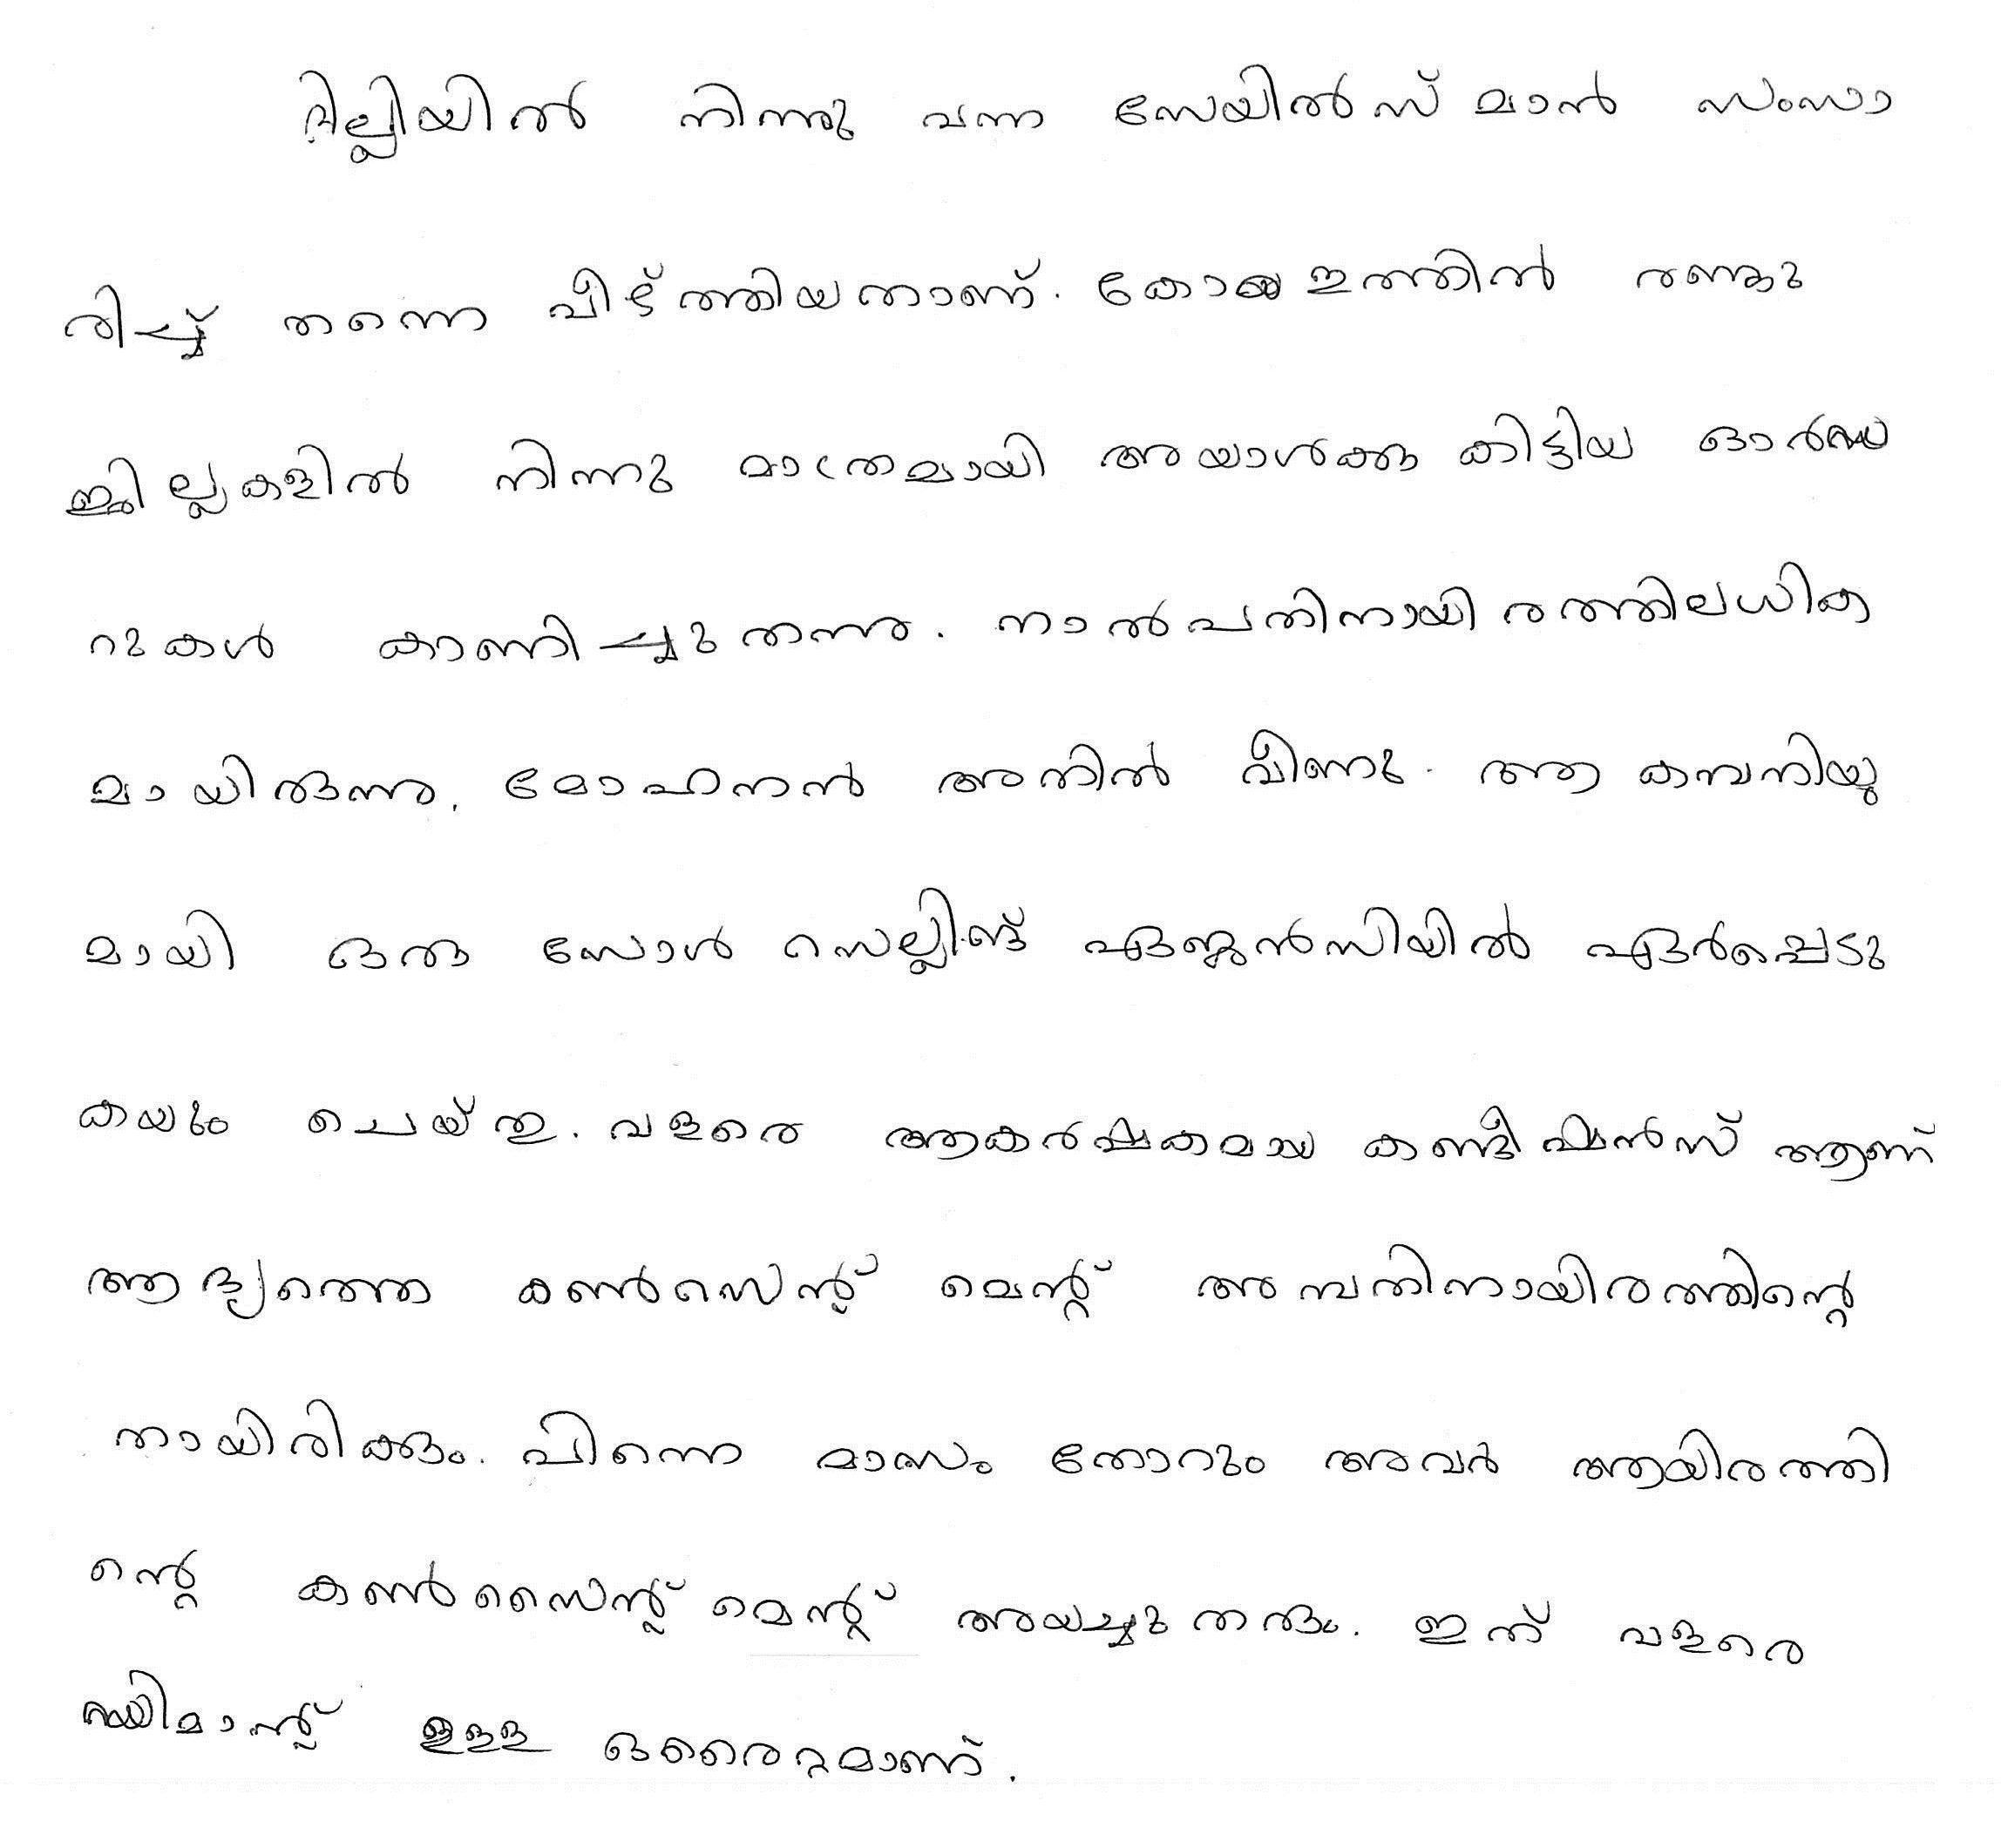 ദില്ലിയിൽ നിന്നു വന്ന സേയിൽസ് മാൻ സംസാ
രിച്ച് തന്നെ വീഴ്ത്തിയതാണ്. രണ്ടു
ജില്ലകളിൽ നിന്നു മാത്രമായി അയാൾക്കു കിട്ടിയ ഓർഡ
റുകൾ കാണിച്ചു തന്നു. നാൽപതിനായിരത്തിലധിക
മായിരുന്നു. മോഹനൻ അതിൽ വീണു. ആ കമ്പനിയു
മായി ഒരു സോൾ സെല്ലിങ്ങ് ഏജൻസിയിൽ ഏർപ്പെടു
കയും ചെയ്തു. വളരെ ആകർഷകമായ കണ്ടീഷൻസ് ആണ്
ആദ്യത്തെ കൺസെന്റ് മെന്റ് അമ്പതിനായിരത്തിന്റെ
തായിരിക്കും. പിന്നെ മാസം തോറും അവർ ആയിരത്തി
ന്റെ കൺസൈന്റ് മെന്റ് അയച്ചു തരും. ഇത് വളരെ
ഡിമാന്റ് ഉള്ള ഒരൈറ്റമാണ്.